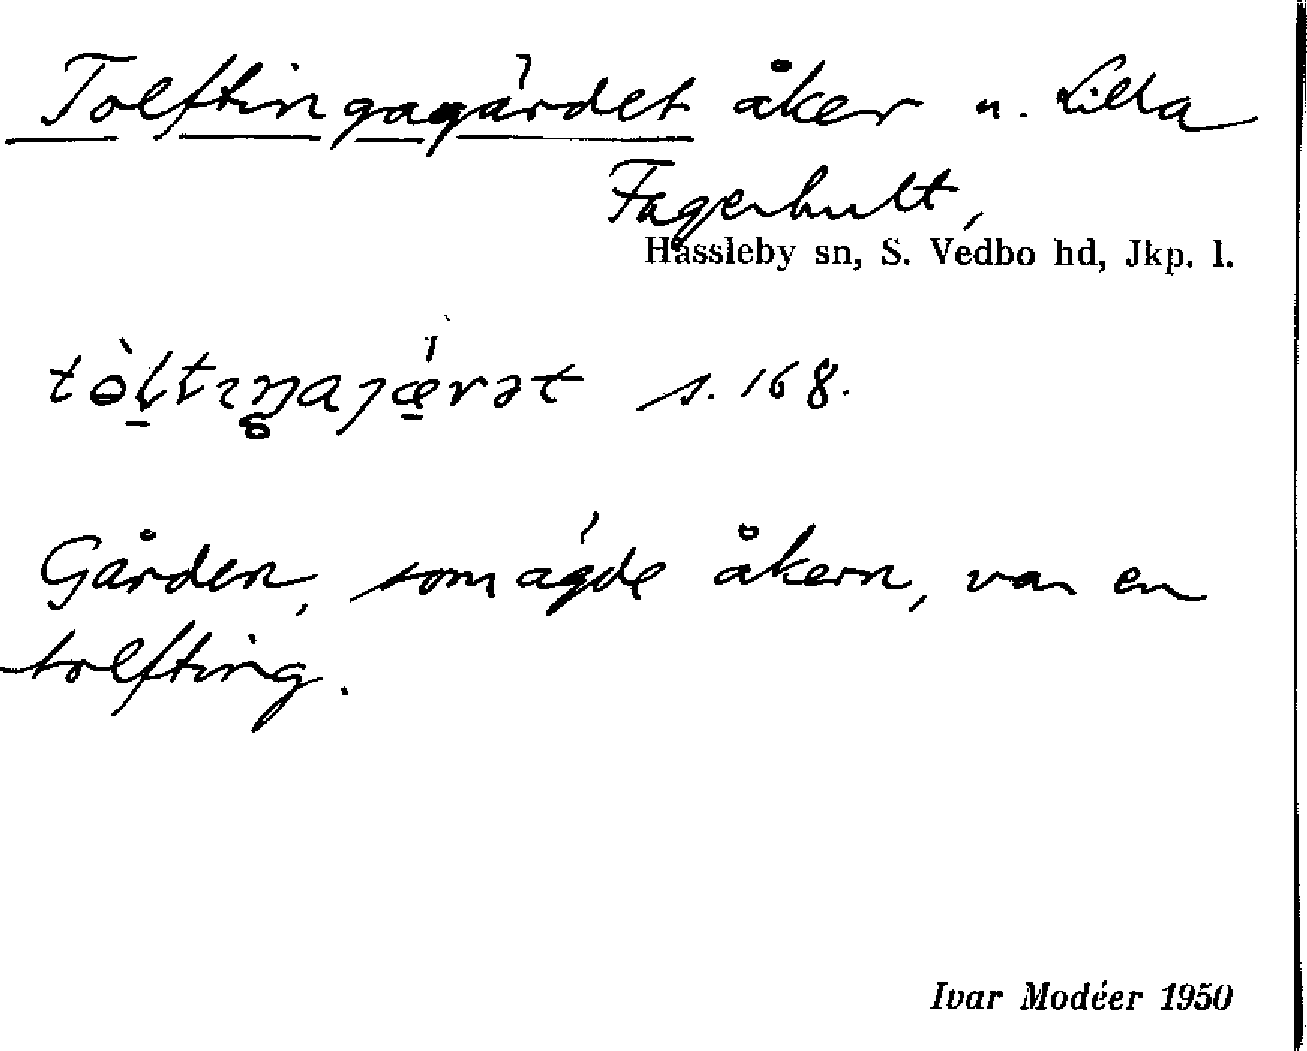 Tolftingagärdet åker n. Lilla
Fagerhult,
Hässleby sn, S. Vedbo hd, Jkp. l.
s. 168.
Gården, som ägde åkern, var en
tolfting.
Ivar Modéer 1950